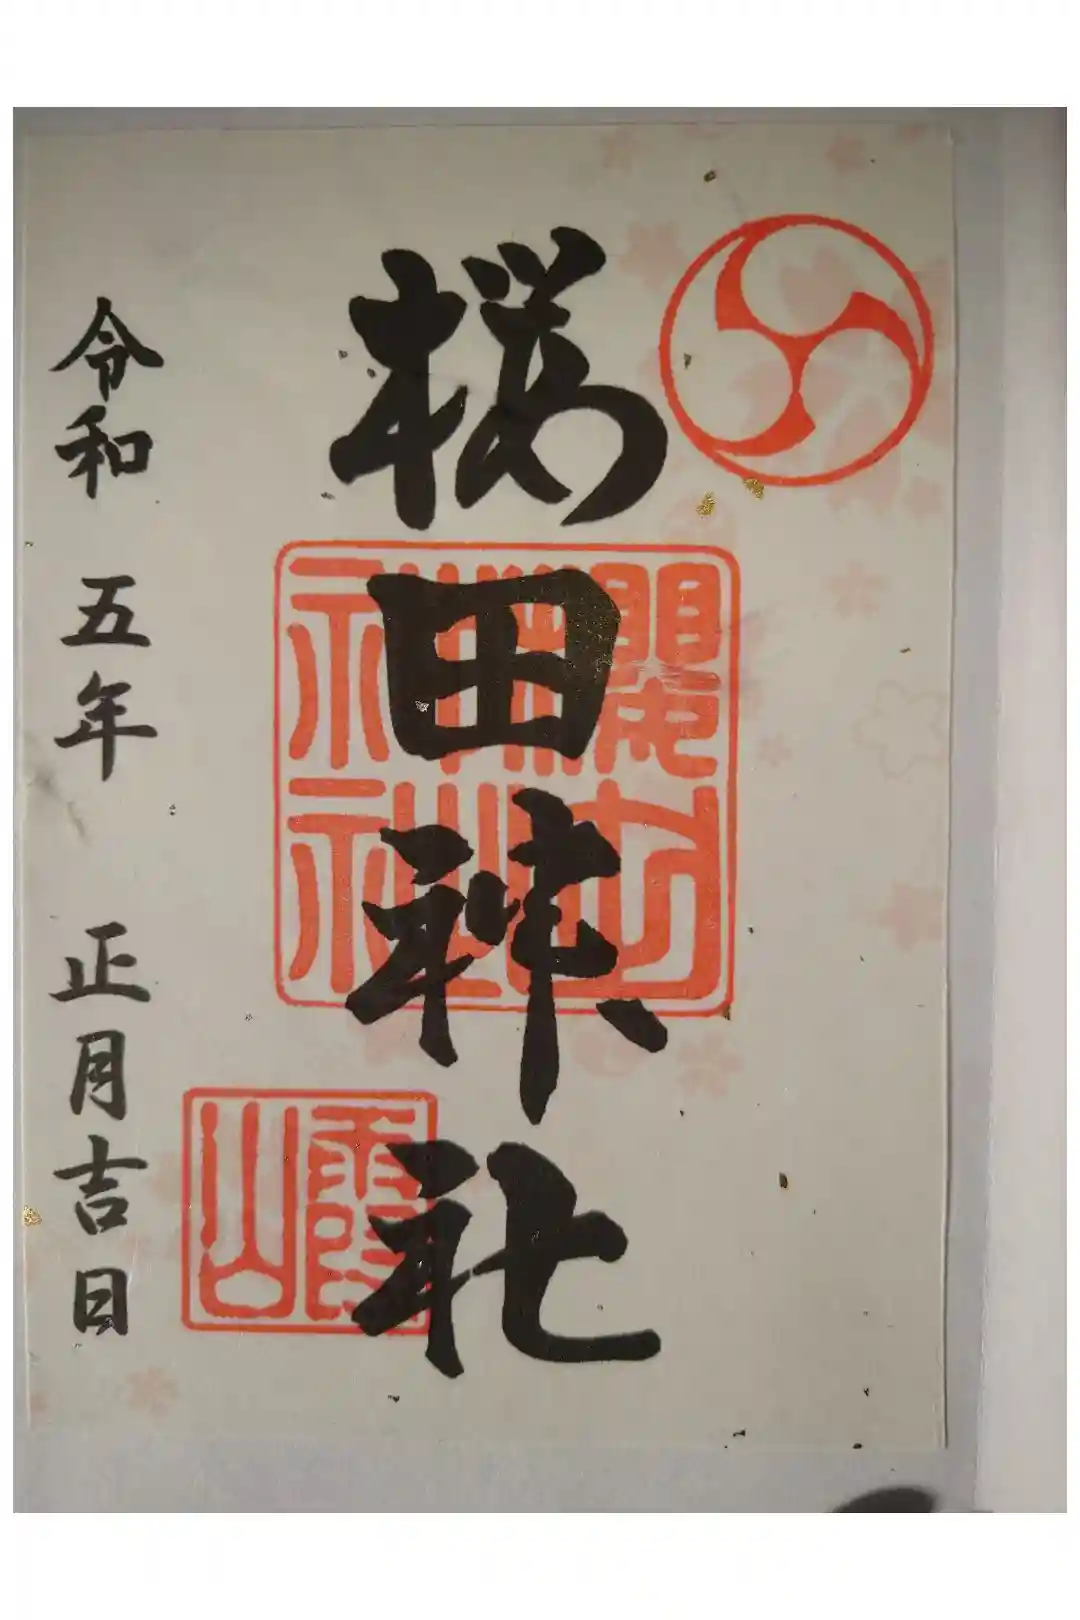 桜田神社
令和 五年 正月吉日
霞山